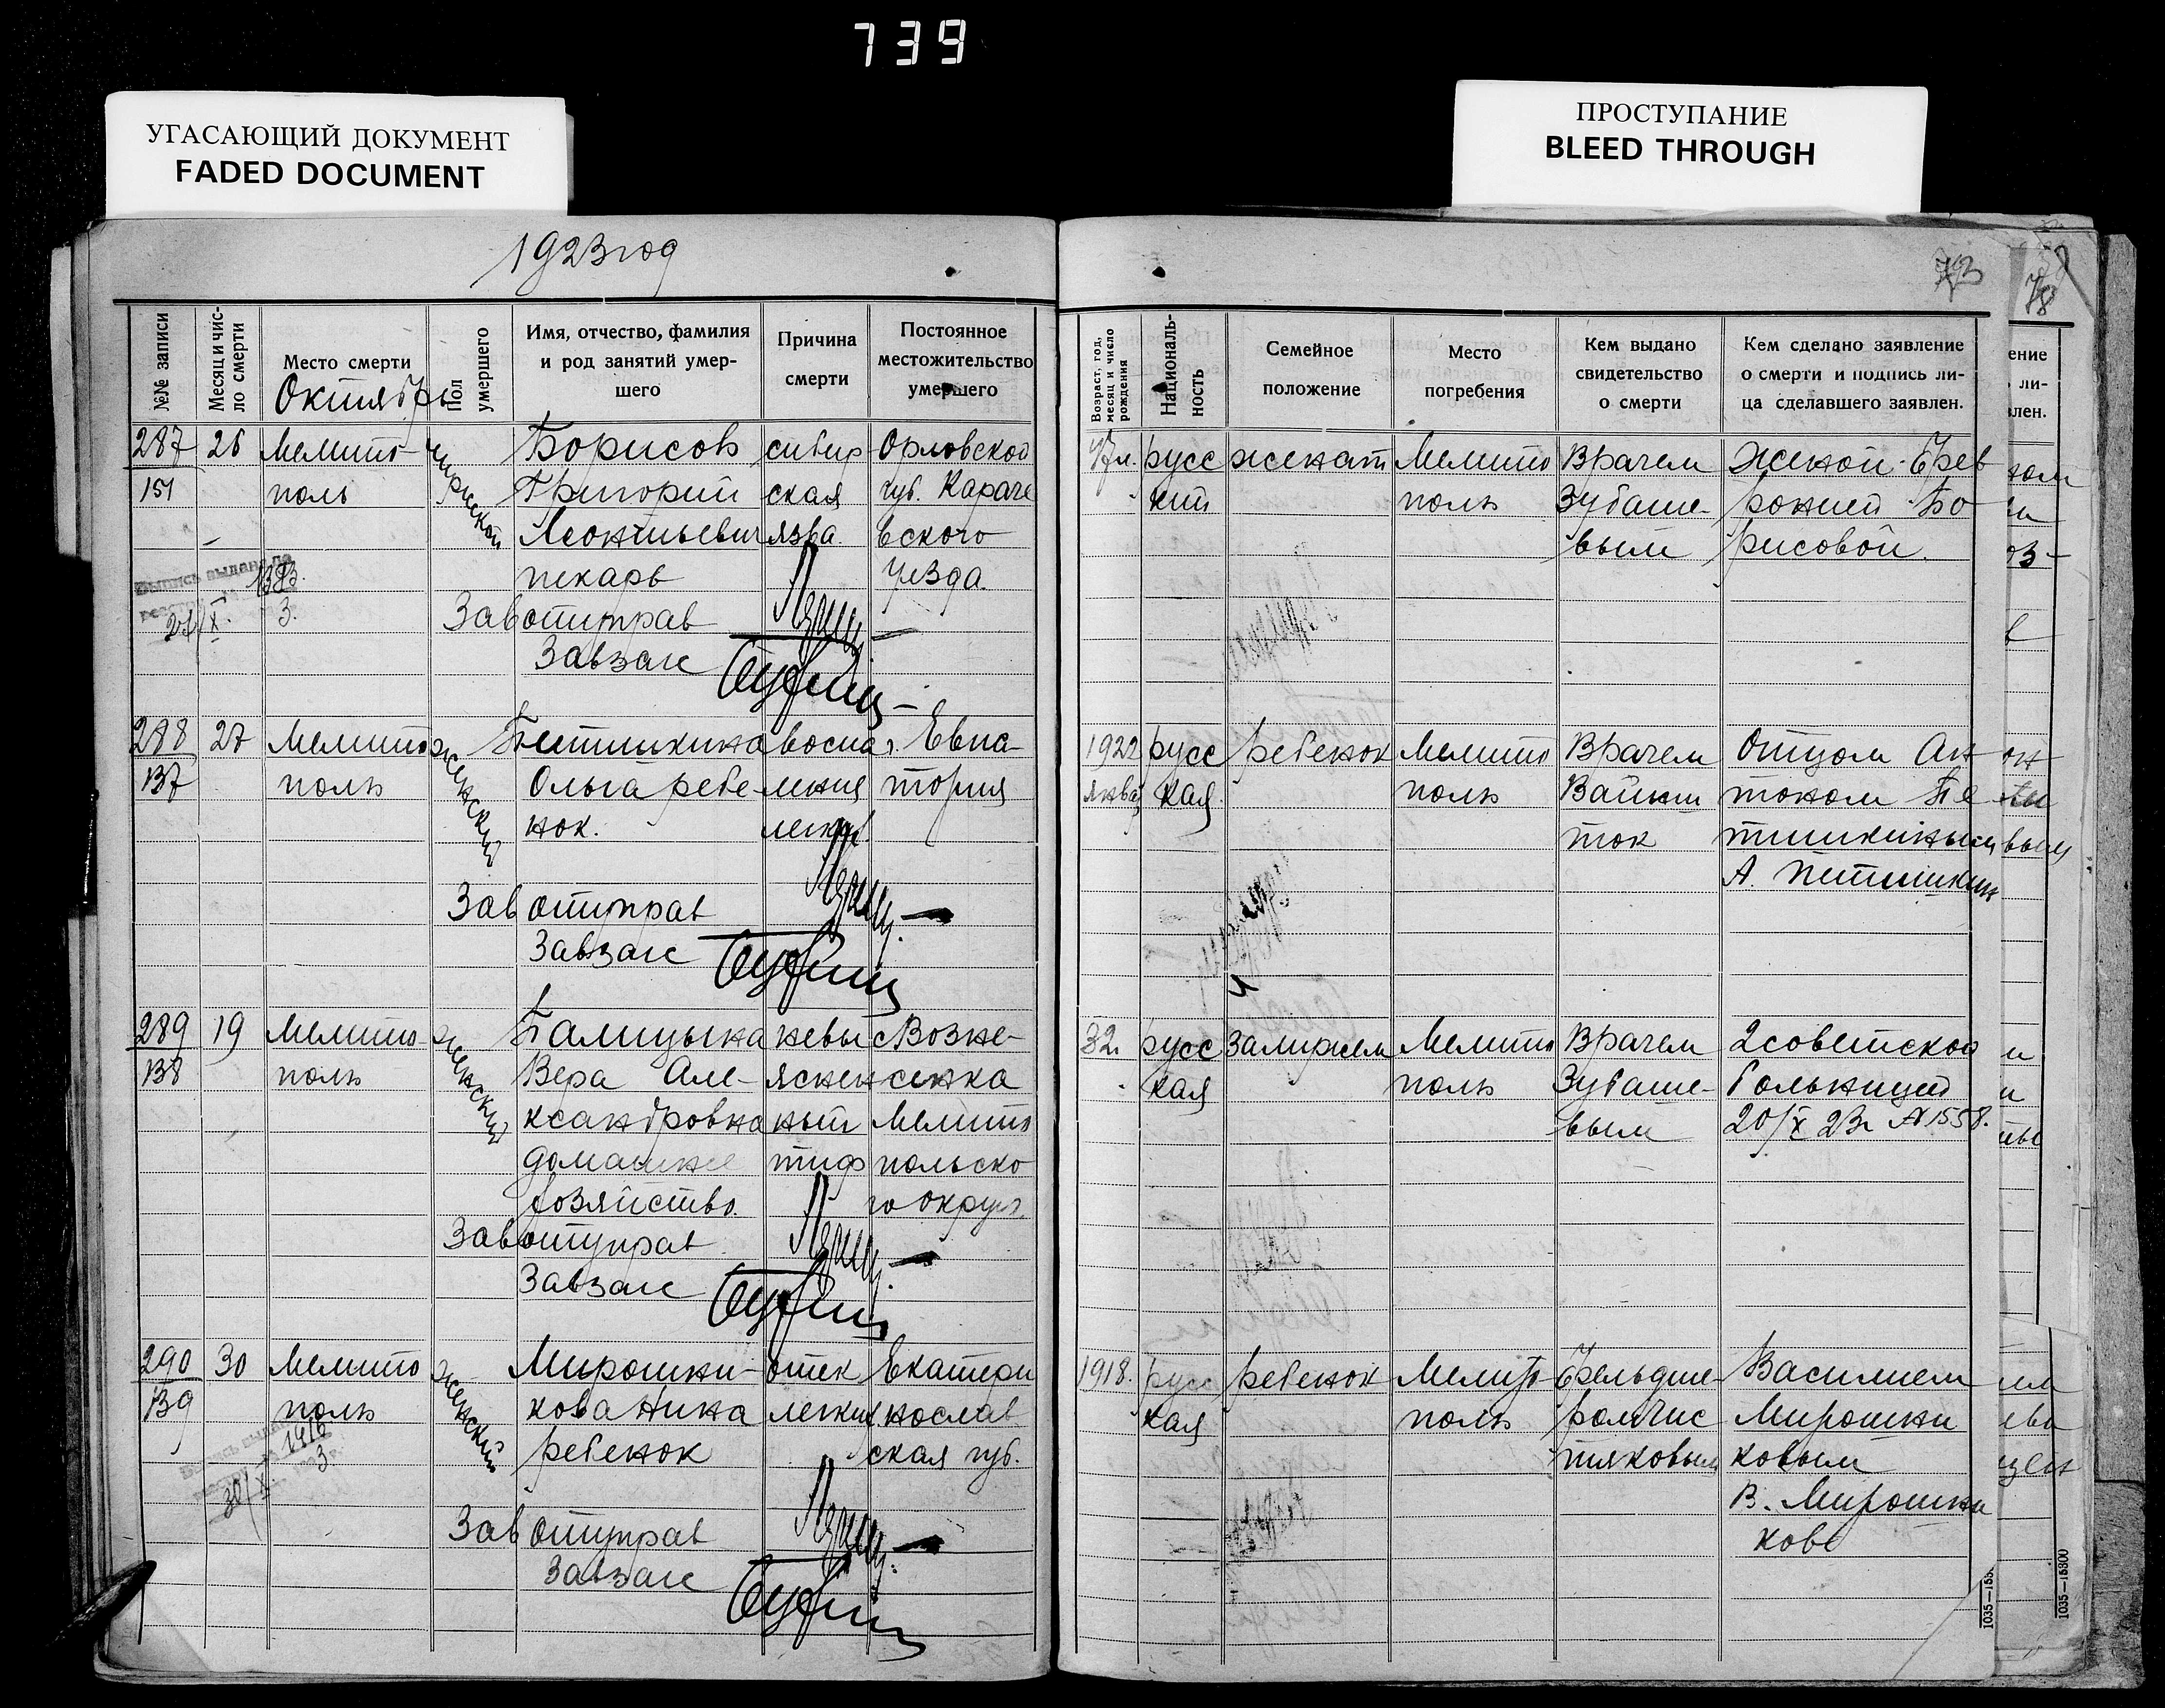 739
УГАСАЮЩИЙ ДОКУМЕНТ
FADED DOCUMENT
ПРОСТУПАНИЕ
BLEED THROUGH
1923 год
73
78
№№ записи
Месяц и чис-
ло смерти
Место смерти
Октябрь
Пол
умершего
Имя, отчество, фамилия
и род занятий умер-
шего
Причина
смерти
Постоянное
местожительство
умершего
Возраст, год,
месяц и число
рождения
Националь-
ность
Семейное
положение
Место
погребения
Кем выдано
свидетельство
о смерти
Кем сделано заявление
о смерти и подпись ли-
ца сделавшего заявлен.
287
151
26
Мелито-
поль
мужской
Борисов
Григорий
Леонтьевич
пекарь
сибир
ская
язва
Орловской
губ. Караче
вского
уезда.
47 л.
русс
кий
женат
Мелито
поль
Врачем
Зубаше-
вым
Женой Ефев
ронией Бо
рисовой
Завотуправ
Завзаг
288
137
27
Мелито
поль
женский
Петишкина
Ольга ребе-
нок.
воспа
ления
легких
Евпа-
тория
1922
январ
русс
кая
ребенок
Мелито
поль
Врачем
Вайнш
ток
Отцом Ан
тоном Пе
тишкиным
А. Петишкин
Зав отуправ
Завзаг
289
138
19
Мелито-
поль
женский
Палицына
Вера Але-
ксандровна
домашнее
хозяйство.
невы
яснен
ный
тиф
с Возне-
сенка
Мелито
польско
го округ.
32.
русс
кая
Замужем
Мелито
поль
Врачем
Зубаше-
вым
2 советской
больницей
20/X 23 г № 1558.
Завотуправ
Завзаг
290
139
30
Мелито
поль
женский
Мирошни-
кова Нина
ребенок
отек
легких
Екатери
нослав
ская губ.
1918.
русс
кая
ребенок
Мелито-
поль
Фельдше-
ром Чис
тяковым
Василием
Мирошни
ковым
В. Мирошни
ков
Зав отуправ
Завзаг